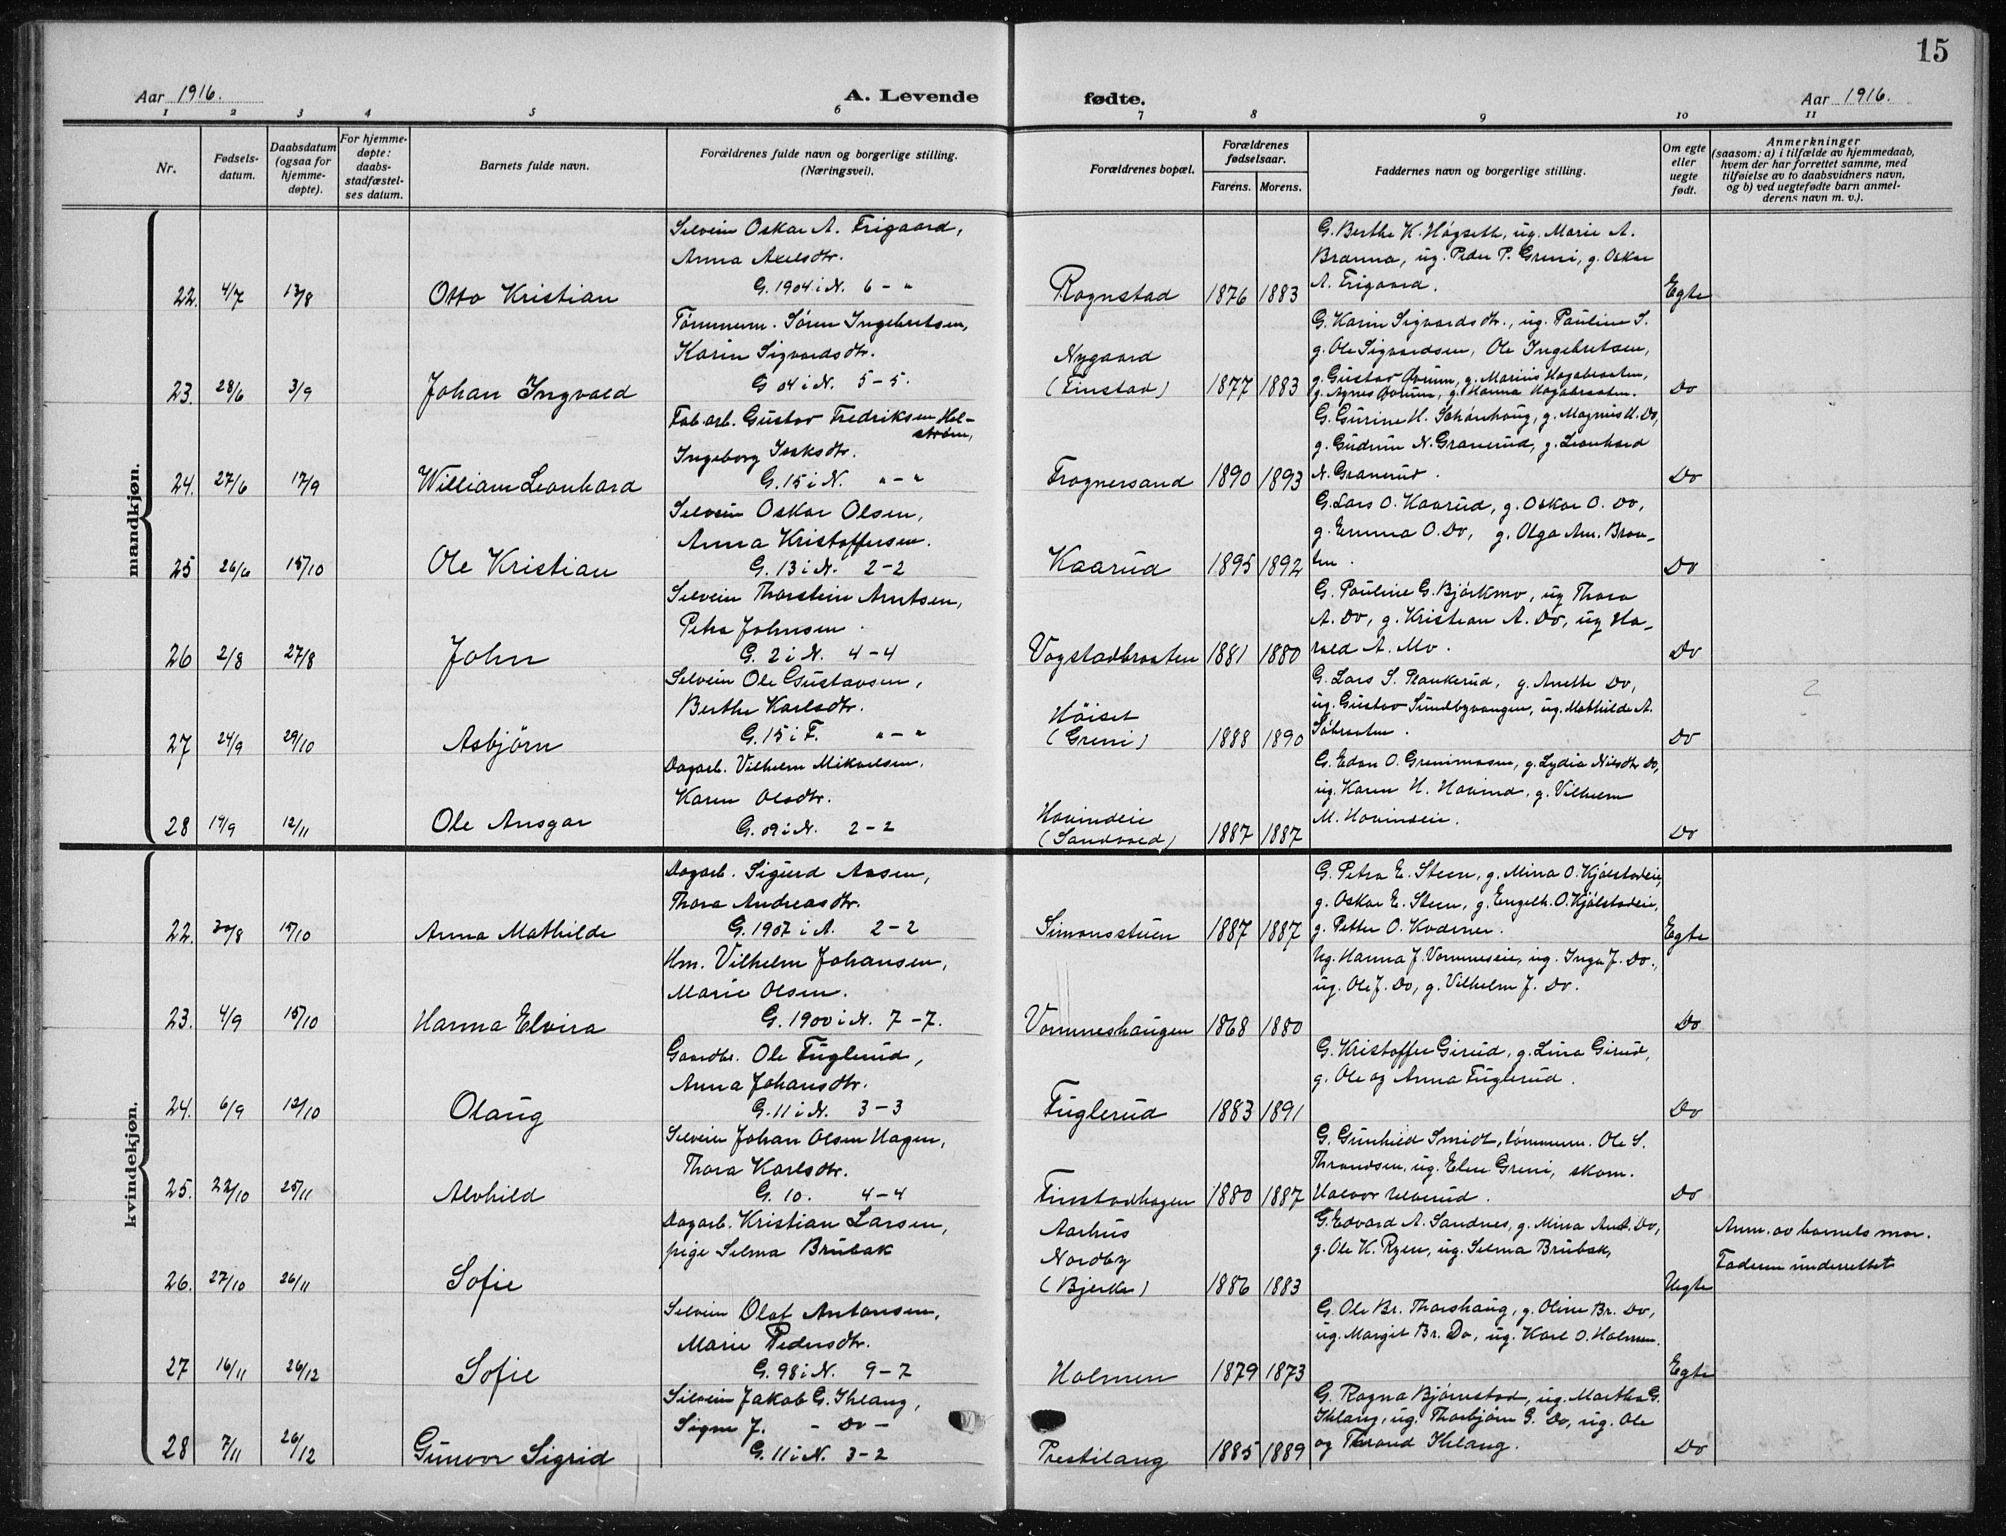 15
Aar 1916.
A. Levende
fødte.
Aar 1916.
1 2 3 4 5 6 7 8 9 10 11
Nr.
Fødsels-
datum.
Daabsdatum
(ogsaa for
hjemme-
døpte).
For hjemme-
døpte:
daabs-
stadfæstel-
ses datum.
Barnets fulde navn.
Forældrenes fulde navn og borgerlige stilling.
(Næringsvei).
Forældrenes bopæl.
Forældrenes
fødselsaar.
Farens. Morens.
Faddernes navn og borgerlige stilling.
Om egte
eller
uegte
født.
Anmerkninger
(saasom: a) i tilfælde av hjemmedaab,
hvem der har forrettet samme, med
tilføielse av to daabsvidners navn,
og b) ved uegtefødte barn anmel-
derens navn m. v.).
mandkjøn.
22. 4/7 13/8 Otto Kristian
Selveier Oskar A. Frigaard,
Anna Axelsdtr.
G. 1904 i N. 6 - "
Rognstad 1876 1883
G. Berthe K. Høgseth, ug. Marie A.
Branna, ug. Peder P. Greni, g. Oskar
A. Frigaard.
Egte
23. 28/6 3/9 Johan Ingvald
Tømmerm. Søren Ingebretsen,
Karin Sigvardsdtr.
G 04 i N. 5 - 5.
Nygaard
(Finstad) 1877 1883
G. Karin Sigvardsdtr., ug. Pauline S.
g. Ole Sigvardsen, Ole Ingebretsen,
g. Gustav Ovrum, g. Marius Hagabraaten,
g. Agnes Ovrum, g. Hanna Hagabraaten.
Do
24. 27/6 17/9 William Leonhard
Fab.arb. Gustav Fredriksen Hel-
strøm,
Ingeborg Isaksdtr.
G. 15 i N. " - "
Frognersand 1890 1893
G. Gurine H. Schønhaug, g. Magnus H. Do,
g. Gudrun N. Granerud, g. Leonhard
N. Granerud.
Do
25 26/6 15/10 Ole Kristian
Selveier Oskar Olsen,
Anna Kristoffersen.
G. 13 i N. 2 - 2
Kaarud 1895 1892
G. Lars O. Kaarud, g. Oskar O. Do,
g. Emma O. Do, g. Olga Am. Braa-
ten.
Do
26 2/8 27/8 John
Selveier Thorstein Arntsen,
Petra Johnsen.
G. 2 i N. 4 - 4
Vogstadbraaten 1881 1880
G. Pauline G. Bjørkmo, ug Thora
A. Do, g. Kristian A. Do, ug Ha-
rald A. Mo.
Do
27 24/9 29/10 Asbjørn
Selveier Ole Gustavsen,
Berthe Karlsdtr.
G. 15 i F. " - "
Høiset
(Greni) 1888 1890
G. Lars S. Plankerud, g. Anette Do,
ug. Gustav Sundbyvangen, ug. Mathilde A.
Søbraaten.
Do
2
28 19/9 12/11 Ole Ansgar
Dagarb. Vilhelm Mikaelsen,
Karen Olsdtr.
G. 09 i N. 2 - 2
Hovindeie
(Sandvold) 1887 1887
G. Edon O. Grenimosen, g. Lydia Nilsdtr Do,
ug. Karen H. Hovind, g. Vilhelm
M. Hovindeie.
Do
kvindekjøn.
22. 30/8 15/10 Anna Mathilde
Dagarb. Sigurd Aasen,
Thora Andreasdtr.
G. 1907 i A. 2 - 2
Simonsstuen 1887 1887
G. Petra E. Steen, g. Mina O. Kjølstadeie,
g. Oskar E. Steen, g. Engelh. O. Kjølstadeie,
g. Petter O. Kværner.
Egte
23. 4/9 15/10 Hanna Elvira
Hm. Vilhelm Johansen,
Marie Olsen.
G. 1900 i N. 7 - 7.
Vommeshaugen 1868 1880
Ug. Hanna J. Vommeseie, ug. Inga J. Do.,
ug. Ole J. Do, g. Vilhelm J. Do.
Do
24. 6/9 12/10 Olaug
Gaardbr. Ole Fuglerud,
Anna Johansdtr.
G. 11 i N. 3 - 3
Fuglerud 1883 1891
G. Kristoffer Girud, g. Lina Girud,
g. Ole og Anna Fuglerud.
Do
25. 22/10 25/11 Alvhild
Selveier Johan Olsen Hagen,
Thora Karlsdtr.
G. 10. 4 - 4
Finstadhagen 1880 1887
G. Gunhild Smidt, tømmerm. Ole S.
Throndsen, ug. Elen Greni, skom.
Halvor Ulverud.
Do
26. 27/10 26/11 Sofie
Dagarb. Kristian Larsen,
pige Selma Brubak
Aarhus
Nordby
(Bjerke) 1886 1883
G. Edvard A. Sandnes, g. Mina And. Do,
g. Ole K. Ryen, ug. Selma Brubak,
Uegte
Anm. av barnets mor.
Faderen underrettet
27 16/11 26/12 Sofie
Selveier Olaf Antonsen,
Marie Pedersdtr.
G. 98 i N. 9 - 7
Holmen 1879 1873
G. Ole Br. Thorshaug, g. Oline Br. Do,
ug. Margit Br. Do, ug. Karl O. Holmen.
Egte
28 7/11 26/12 Gunvor Sigrid
Selveier Jakob G. Ihlang,
Signe J. - Do -
G. 11 i N. 3 - 2
Prestilang 1885 1889
G. Ragna Bjørnstad, ug. Martha G.
Ihlang, ug. Thorbjørn G. Do, ug. Ole
og Thorvald Ihlang.
Do